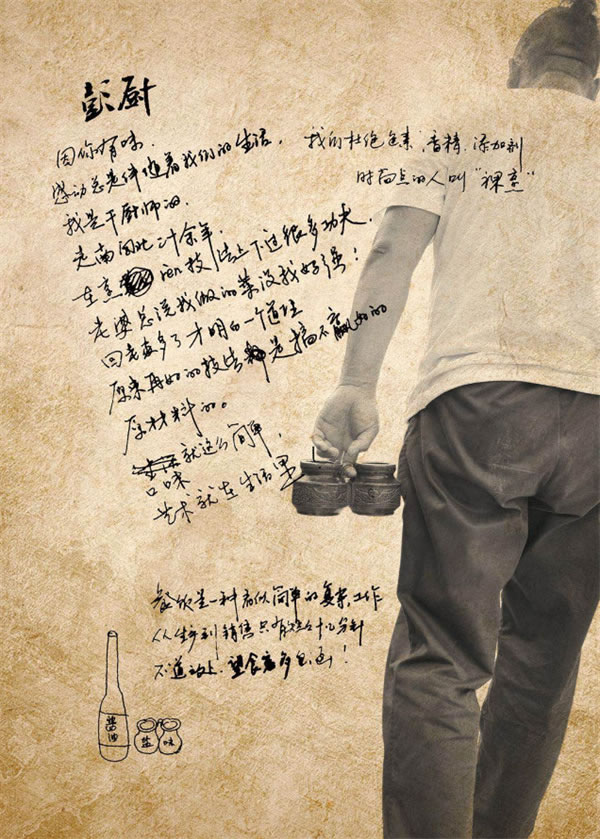 彭厨
因你有味.
感动总是伴随着我们的生活,
我是干厨师的.
走南闯北二十余年.
在烹 技法上下过很多功夫.
老婆总说我做的菜没我妈强!
回老家多了才明白一个道理
原来再好的技法是搞不赢好的
原材料的。
就这么简单,
口味
艺术就在生活里
我们杜绝色素,香精,添加剂
时尚点的人叫“裸烹”
餐饮是一种看似简单的复杂工作
从生产到销售只有这十几分钟
不道之上,望食客多包涵!
酱油
盐
味